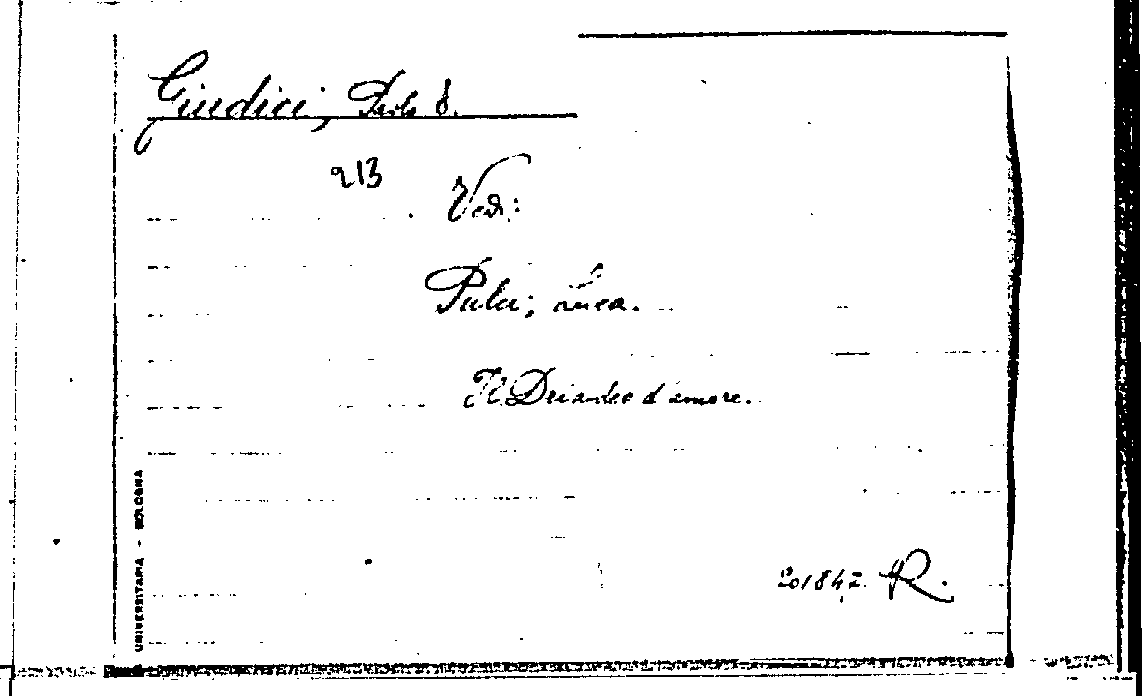 Giudici, Paolo E.
213
Vedi:
Pulci, Luca.
Il Driadeo d'amore.
201847. R.
UNIVERSITARIA - BOLOGNA